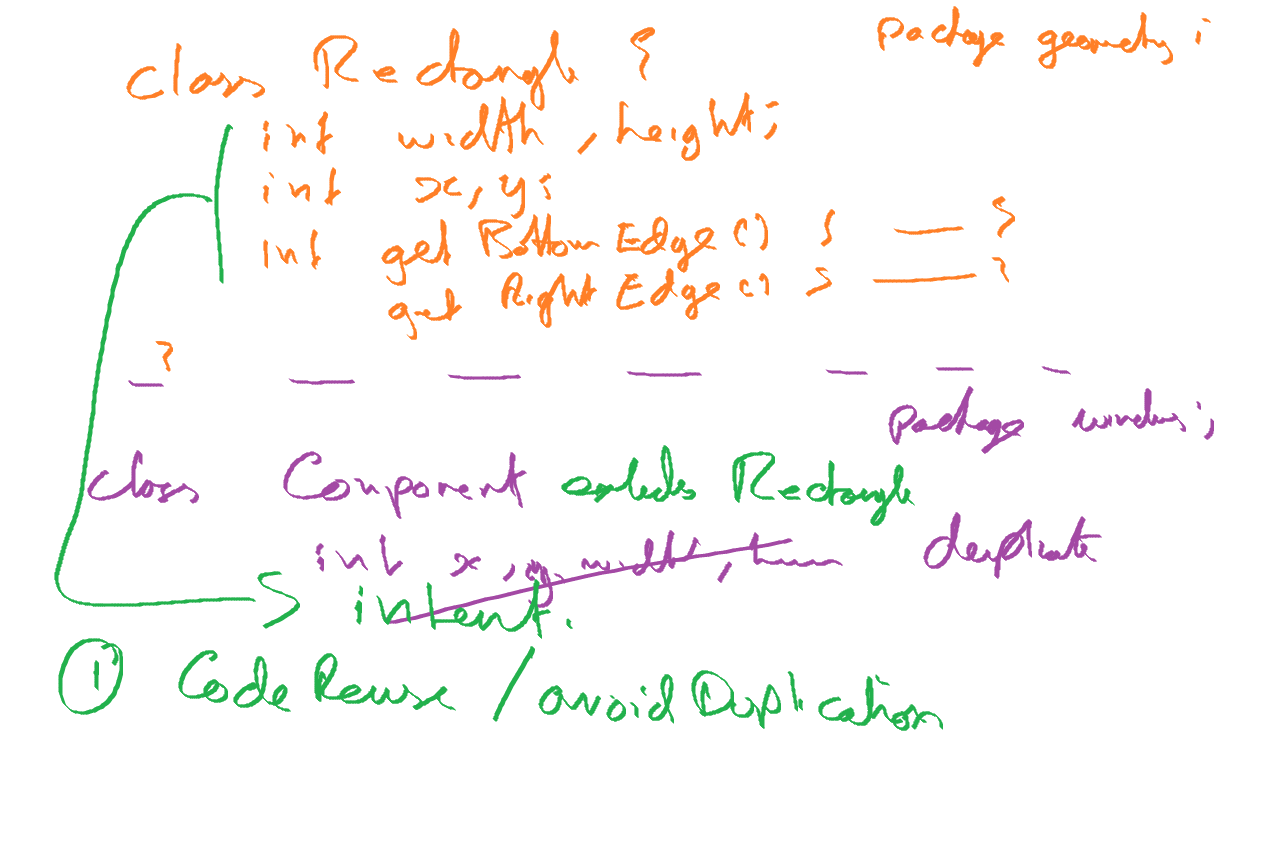 package geometry;
class Rectangle {
int width, height;
int x, y;
int getBottomEdge() { — }
getRightEdge() { — }
}
package windows;
class Component extends Rectangle
int x, y, width, duplicate
intent.
① Code Reuse / avoid Duplication